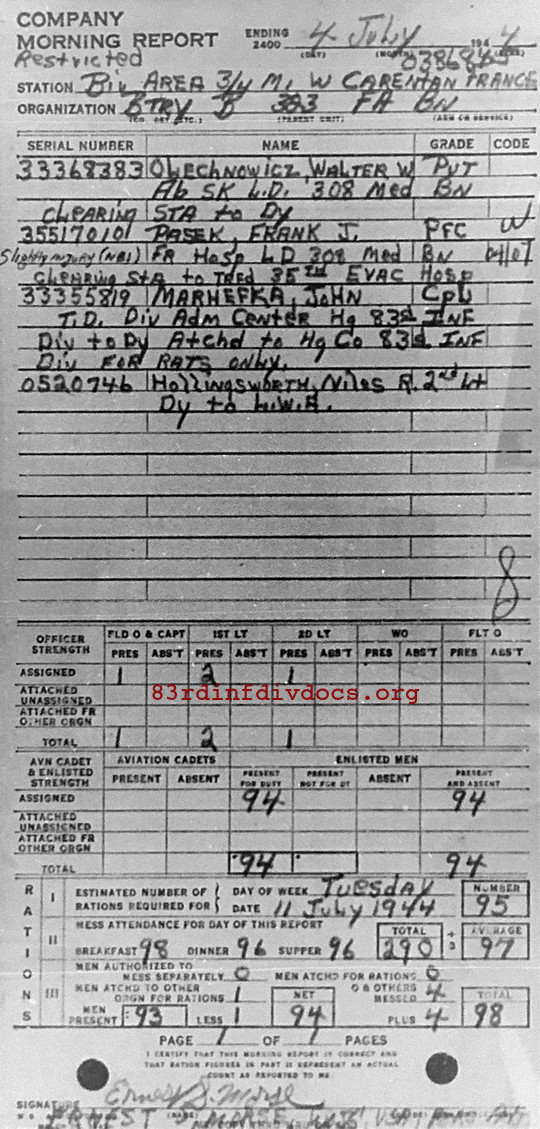 COMPANY
MORNING REPORT
ENDING 2400 4 July 1944
(DAY) (MONTH) (YEAR)
Restricted
STATION Biv AREA 3/4 Mi W CARENTAN FRANCE
ORGANIZATION BTRY B 323 FA BN
(PARENT UNIT) (ARM OR SERVICE)
SERIAL NUMBER NAME GRADE CODE
33368383 OLECHNOWICZ WALTER W PVT
Ab SK L.D. 308 Med BN
CLEARING STA to Dy
35517010 PASEK, FRANK J. PFC W
Slightly injury (NBI) FR Hosp LD 308 Med BN
CLEARING STA to TRFD 35TH EVAC HOSP
33355819 MARHEFKA, JOHN CPL
T.D. Div Adm Center Hq 83d INF
Div to Dy Atchd to Hq Co 83d INF
Div FOR RATS ONLY.
0520746 HOLLINGSWORTH, Niles R. 2nd Lt
Dy to L.W.A.
8
OFFICER STRENGTH FLD O & CAPT 1ST LT 2D LT WO FLT O
PRES ABS'T PRES ABS'T PRES ABS'T PRES ABS'T PRES ABS'T
ASSIGNED 1 2 1
ATTACHED UNASSIGNED
83rdinfdivdocs.org
ATTACHED FR OTHER ORGN
TOTAL 1 2 1
AVN CADET & ENLISTED STRENGTH AVIATION CADETS ENLISTED MEN
PRESENT ABSENT PRESENT FOR DUTY PRESENT NOT FOR DY ABSENT PRESENT AND ABSENT
ASSIGNED 94 94
ATTACHED UNASSIGNED
ATTACHED FR OTHER ORGN
TOTAL 94 94
RATIONS
I ESTIMATED NUMBER OF RATIONS REQUIRED FOR DAY OF WEEK Tuesday NUMBER
DATE 11 July 1944 95
II MESS ATTENDANCE FOR DAY OF THIS REPORT TOTAL ÷ 3 AVERAGE
BREAKFAST 98 DINNER 96 SUPPER 96 290 97
III MEN AUTHORIZED TO MESS SEPARATELY 0 MEN ATCHD FOR RATIONS 0
MEN ATCHD TO OTHER ORGN FOR RATIONS 1 NET O & OTHERS MESSED 4 TOTAL
MEN PRESENT 93 LESS 1 94 PLUS 4 98
PAGE 1 OF 1 PAGES
I CERTIFY THAT THIS MORNING REPORT IS CORRECT AND
THAT RATION FIGURES IN PART III REPRESENT AN ACTUAL
COUNT AS REPORTED TO ME.
SIGNATURE Ernest S. Morse
ERNEST S MORSE